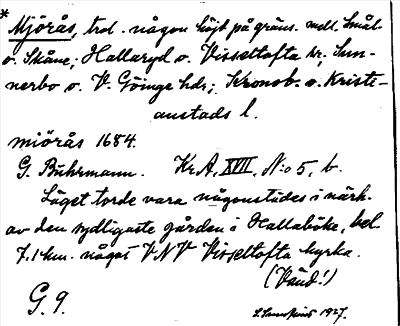 * Mjörås, trol. någon höjd på gräns. mell. Små-
o. Skåne; Hallaryd o. Visseltofta sr; Sun-
nerbo o. V. Göinge hdr; Kronob. o. Kristi-
anstads l.
miörås 1684.
G. Buhrmann. Kr.A, XVII, N:o 5, b.
Läget torde vara någonstädes i närh.
av den sydligaste gården i Hallaböke, bel.
7.1 km. något VNV Visseltofta kyrka.
(Vänd!)
G. 9.
1927.